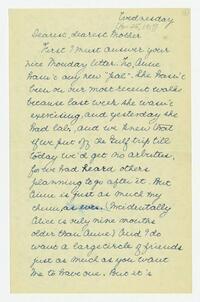 Wednesday
Dearest, dearest Mother
First I must answer your
nice Monday letter. No, Anne
hasn't any new "pal". She hasn't
been on our most recent walks
because last week she wasn't
exercising, and yesterday she
had Lab, and we knew that
if we put off the trip till
today we'd get no arbutus,
for we had heard others
planning to go after it. But
Anne is just as much my
chum as ever. (Incidentally
Alice is only nine months
older than Anne) And I do
want a large circle of friends
just as much as you want
me to have one. But it's